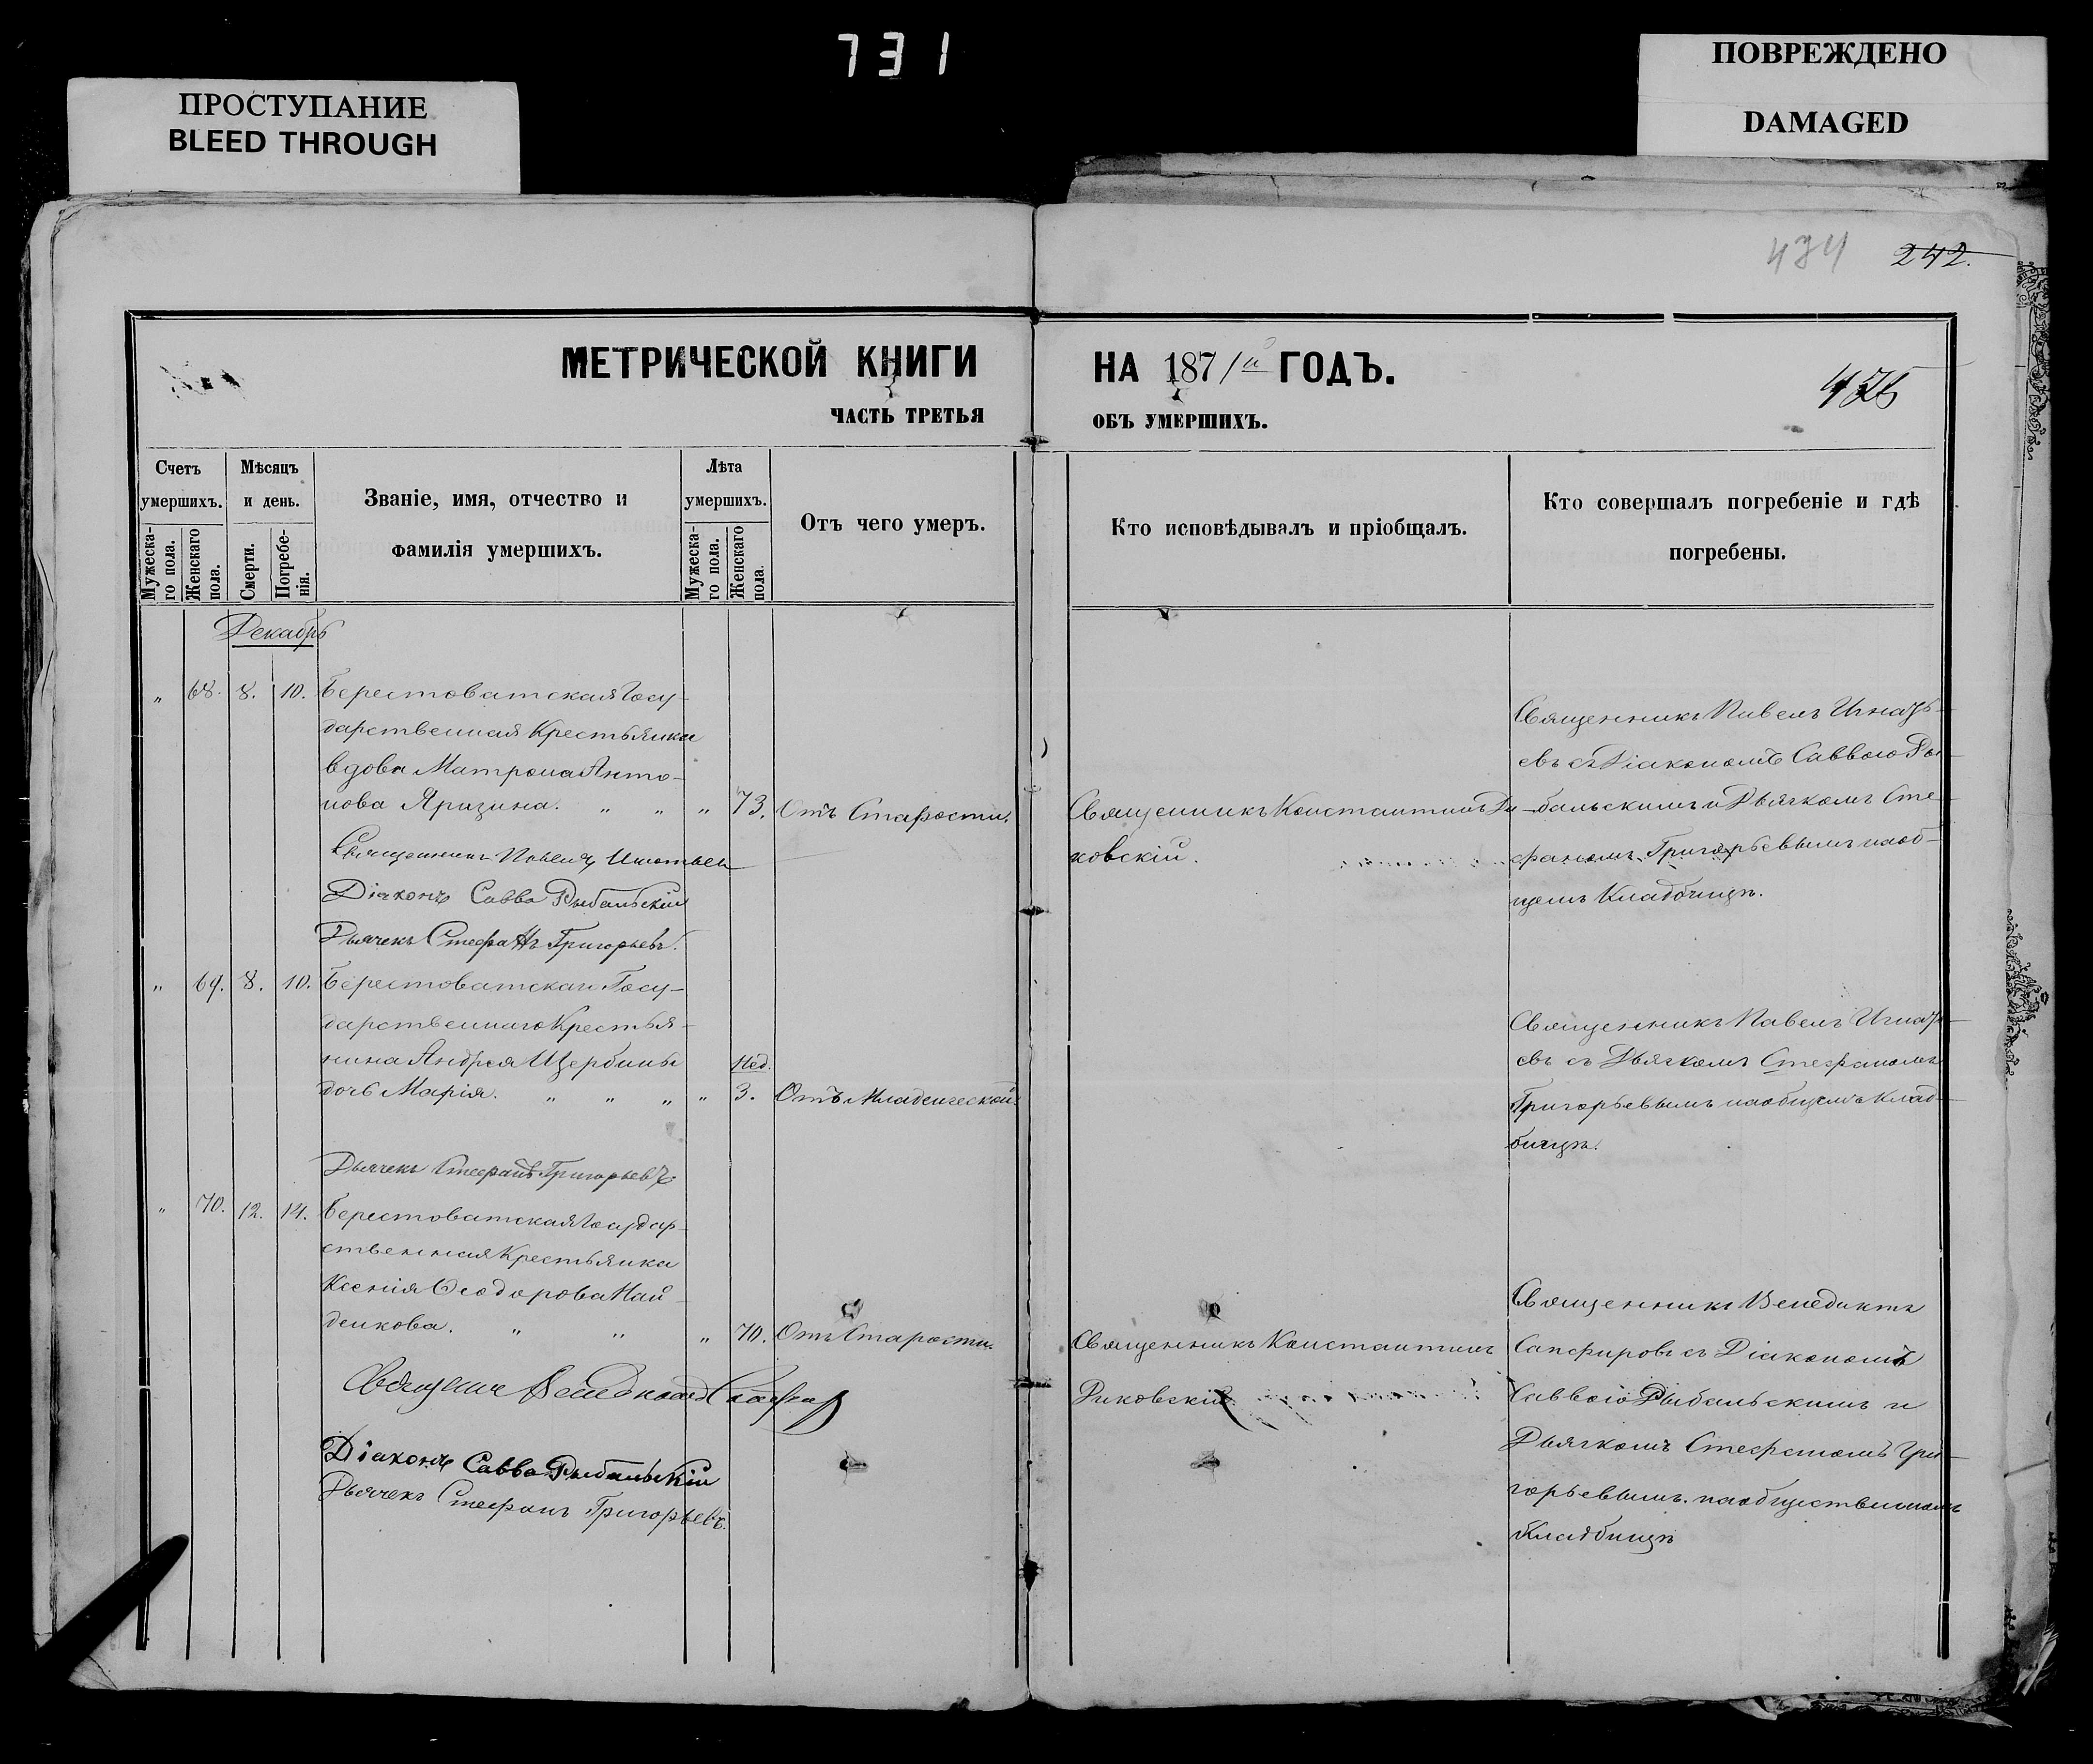 731
ПРОСТУПАНИЕ
BLEED THROUGH
ПОВРЕЖДЕНО
DAMAGED
434 242.
МЕТРИЧЕСКОЙ КНИГИ НА 1871й ГОДЪ.
ЧАСТЬ ТРЕТЬЯ ОБЪ УМЕРШИХЪ.
Счетъ умершихъ.
Мужеска-го пола.
Женскаго пола.
Мѣсяцъ и день.
Смерти.
Погребе-нія.
Званіе, имя, отчество и
фамилія умершихъ.
Лѣта умершихъ.
Мужеска-го пола.
Женскаго пола.
Отъ чего умеръ.
Кто исповѣдывалъ и пріобщалъ.
Кто совершалъ погребеніе и гдѣ
погребены.
Декабрь
" 68. 8. 10. Берестоватская Госу-
дарственная Крестьянка
вдова Матрона Анто-
нова Яризина. " " " 73. Отъ Старости.
Священникъ Константинъ Ди-
ковскій.
Священникъ Павелъ Игнатъ-
евъ съ Діакономъ Саввою Ры-
бальскимъ и Дьячкомъ Сте-
фаномъ Григорьевымъ на об-
щемъ Кладбищѣ.
Священникъ Павелъ Игнатьевъ
Діаконъ Савва Рыбальскій
Дьячекъ Стефанъ Григорьевъ.
" 69. 8. 10. Берестоватскаго Госу-
дарственнаго Крестья-
нина Андрея Щербины
дочь Марія. " " " " Нед. 3. Отъ Младенческой.
Священникъ Павелъ Игнатъ-
евъ съ Дьячкомъ Стефаномъ
Григорьевымъ на общемъ Клад-
бищѣ.
Дьячекъ Стефанъ Григорьевъ
" 70. 12. 14. Берестоватская Государ-
ственная Крестьянка
Ксенія Ѳеодорова Най-
денкова. " " " 70. Отъ Старости.
Священникъ Константинъ
Диковскій
Священникъ Венедиктъ
Сапфировъ съ Діакономъ
Саввою Рыбальскимъ и
Дьячкомъ Стефаномъ Гри-
горьевымъ. на общественномъ
Кладбищѣ
Діаконъ Савва Рыбальскій
Дьячекъ Стефанъ Григорьевъ.